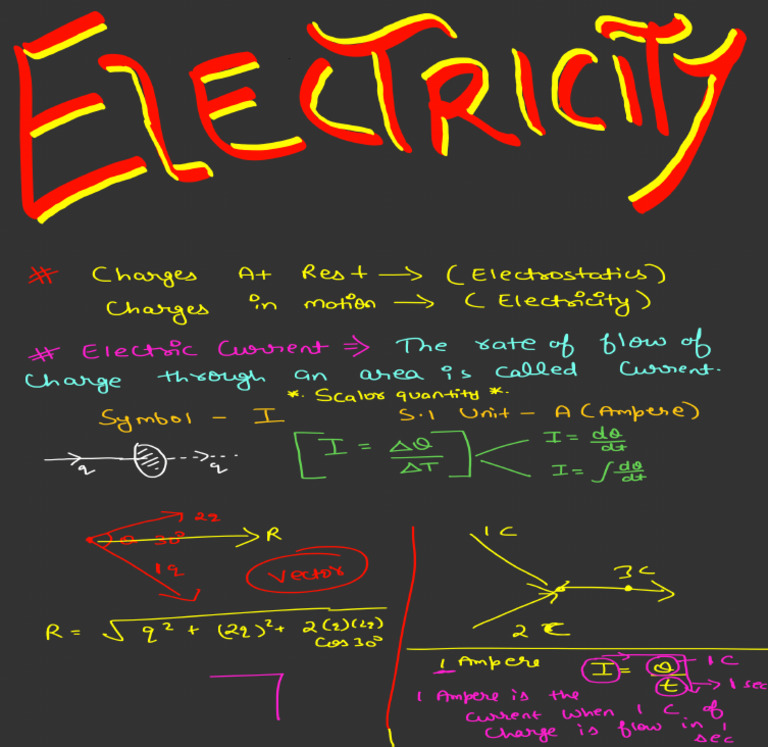 ELECTRICITY
# Charges At Rest → (Electrostatics)
Charges in motion → (Electricity)
# Electric Current ⇒ The rate of flow of
Charge through an area is called Current.
*. Scalar quantity *.
Symbol - I S.I Unit - A (Ampere)
[I = ΔQ/ΔT]
I = dQ/dt
I = ∫dQ/dt
q q
2q
θ 30°
R
1q
Vector
R = √q² + (2q)² + 2(q)(2q) cos30°
1C
3C
2C
1 Ampere I = Q/t → 1C → 1 sec
1 Ampere is the
Current when 1 C of
Charge is flow in 1
sec